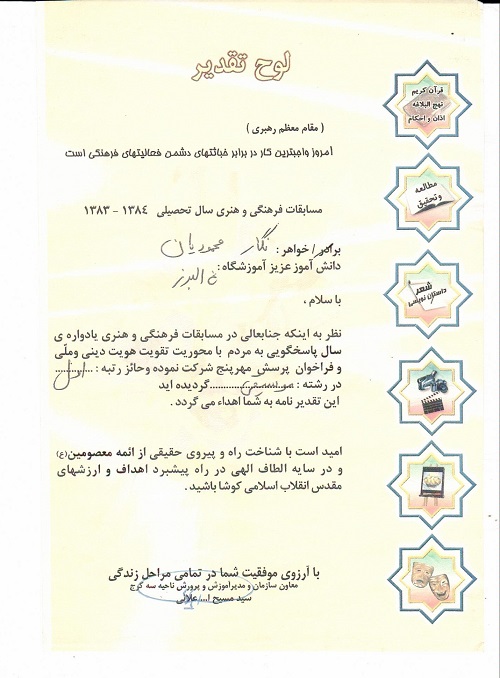 لوح تقدیر
قرآن کریم
نهج البلاغه
اذان و احکام
( مقام معظم رهبری )
امروز واجبترین کار در برابر خباثتهای دشمن فعالیتهای فرهنگی است
مطالعه
و تحقیق
مسابقات فرهنگی و هنری سال تحصیلی ١٣٨٤ - ١٣٨٣
برادر/ خواهر : نگار محمودیان
دانش آموز عزیز آموزشگاه : البرز
شعر
داستان نویسی
با سلام ،
نظر به اینکه جنابعالی در مسابقات فرهنگی و هنری یادواره ی
سال پاسخگویی به مردم با محوریت تقویت هویت دینی وملّی
و فراخوان پرسش مهرپنج شرکت نموده وحائز رتبه : ....اول....
در رشته : ............ گردیده اید
این تقدیر نامه به شما اهداء می گردد .
امید است با شناخت راه و پیروی حقیقی از ائمه معصومین(ع)
و در سایه الطاف الهی در راه پیشبرد اهداف و ارزشهای
مقدس انقلاب اسلامی کوشا باشید .
با آرزوی موفقیت شما در تمامی مراحل زندگی
معاون سازمان و مدیرآموزش و پرورش ناحیه سه کرج
سید مسیح ا... علائی